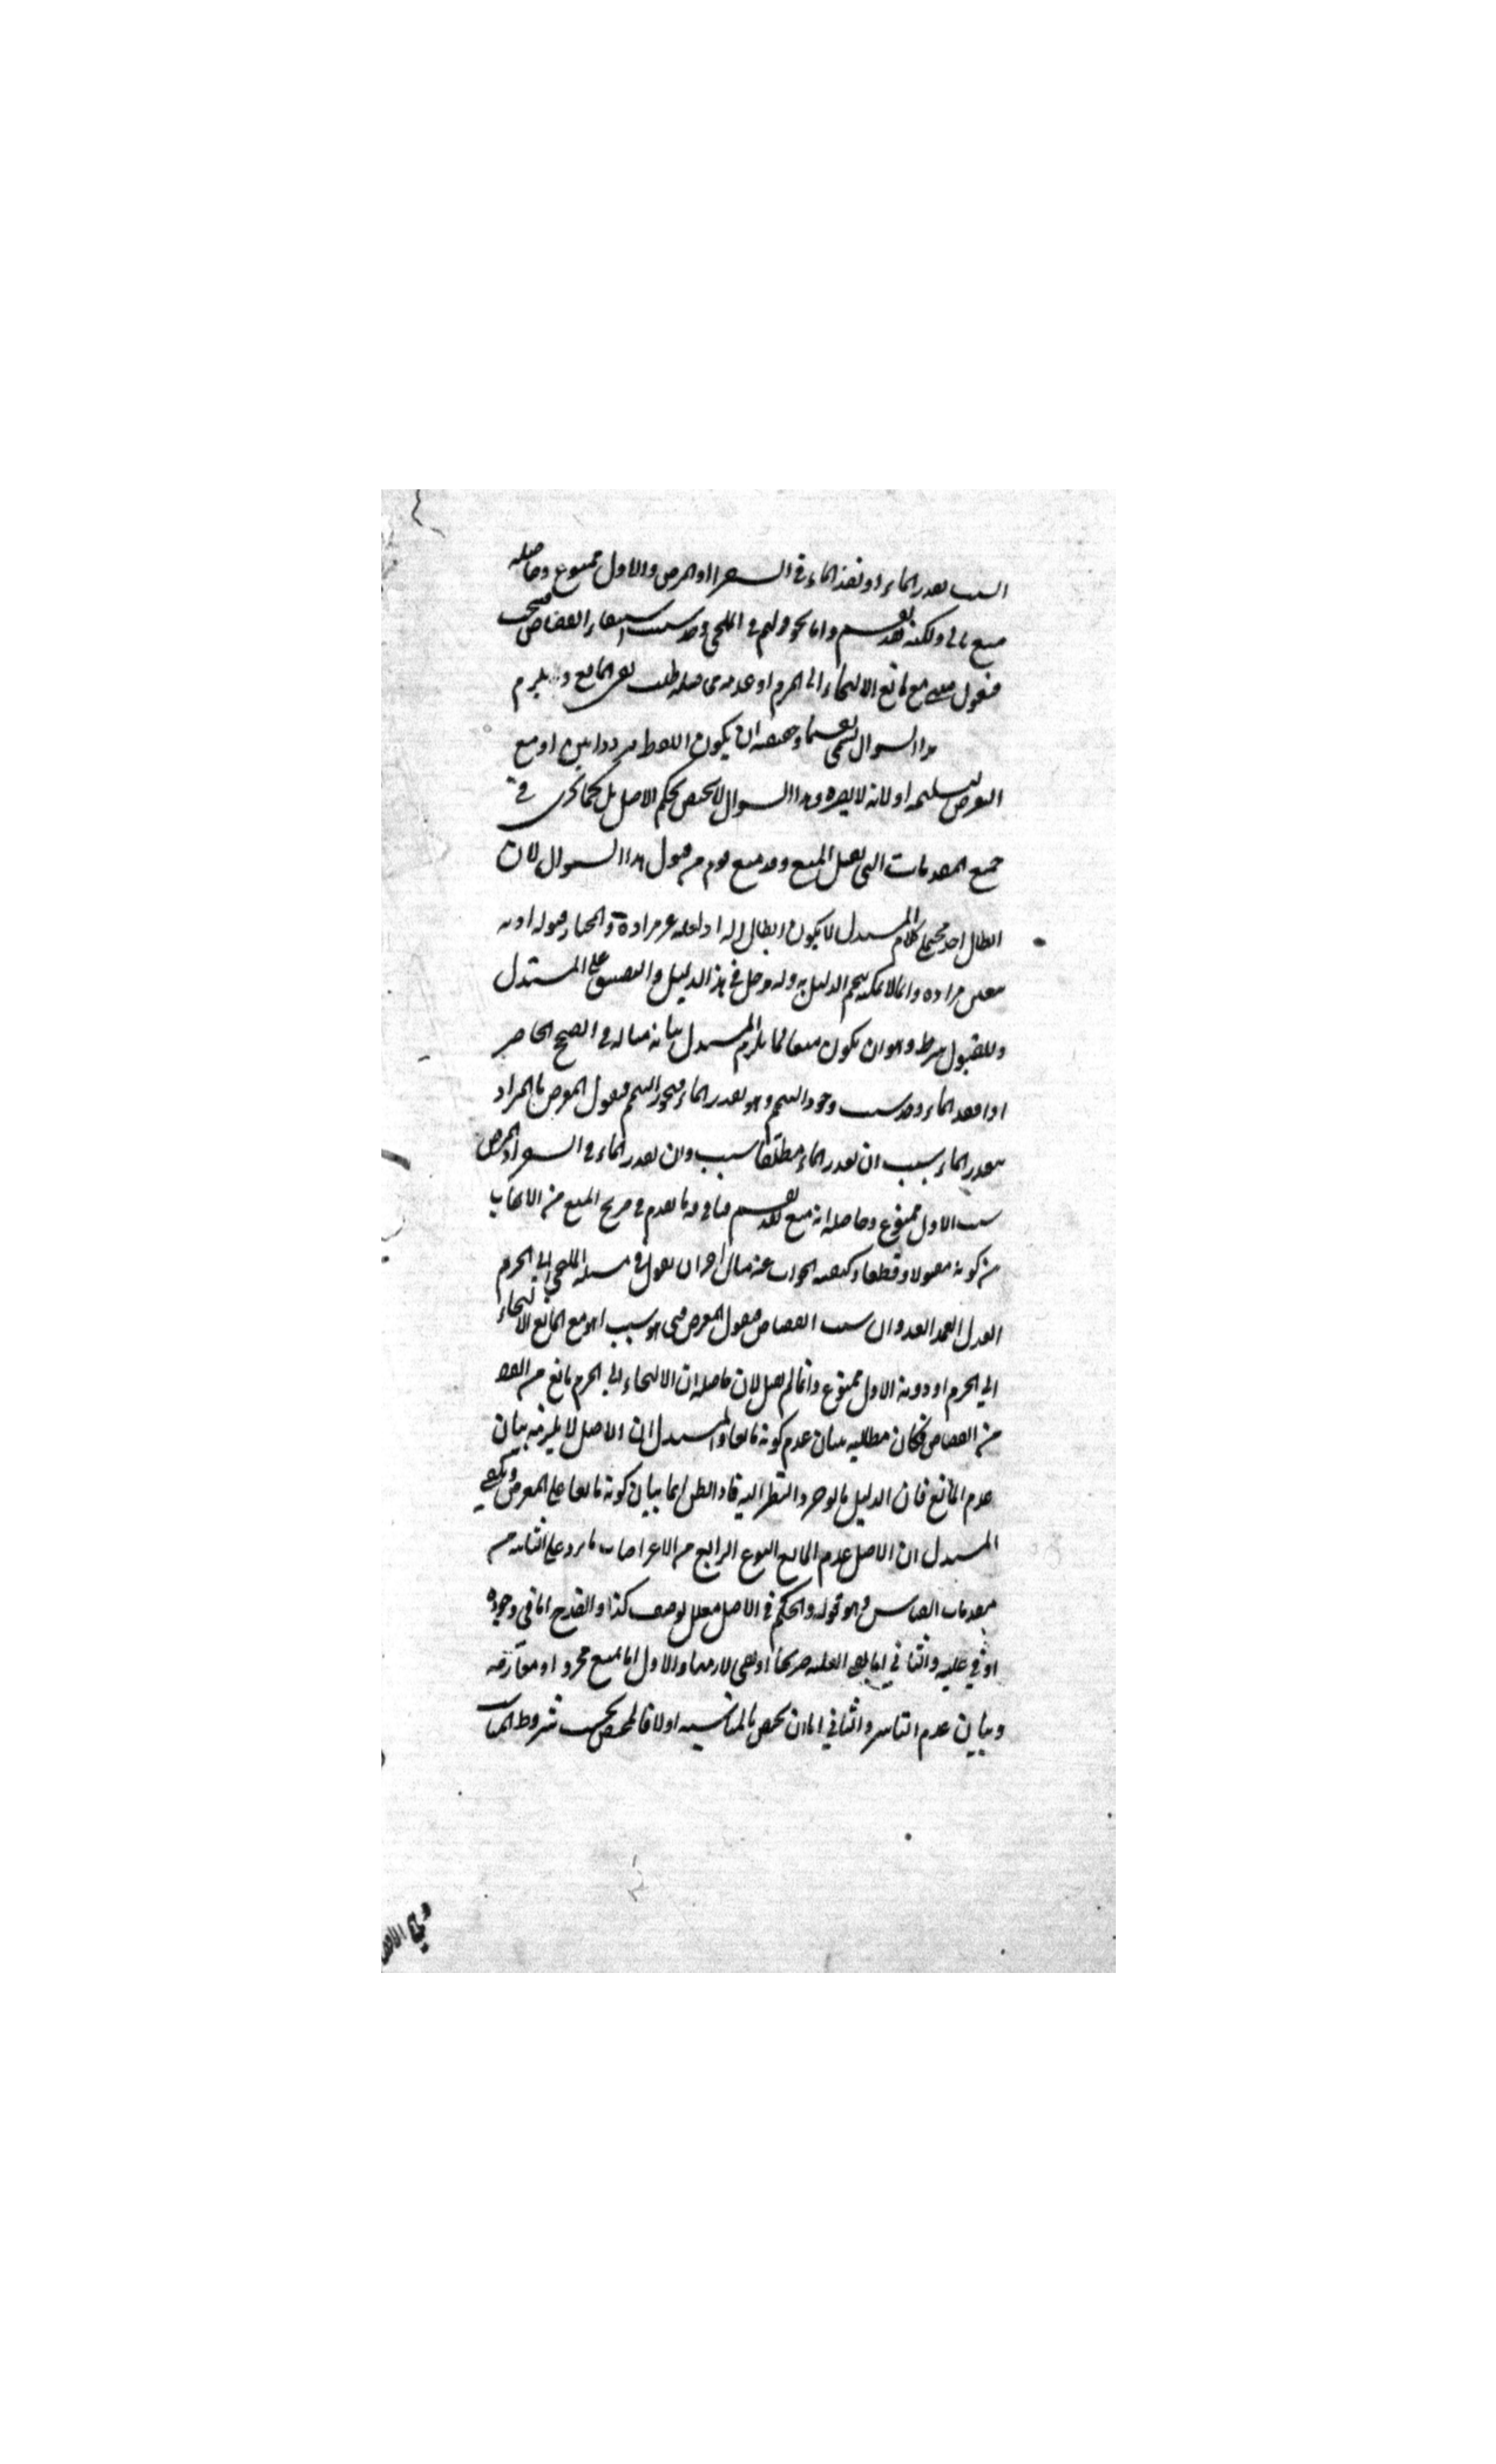 السبب تعذر الماء او تعذر الماء في السفر او المرض والاول ممنوع وحاصله
منع ياتي ولكنه بعد تقسيم واما نحو قولهم في الملتجي وجد سبب استيفاء القصاص فيجب
فنقول متى مع مانع الالتجاء الى الحرم او عدمه فحاصله طلب نفي المانع ولا يلزم
هذا السوال يسمى تقسيما وحقيقته ان يكون اللفظ مرددا بين او مع
التعرض لتسليمه او لانه لا يضره وهذا السوال لا يختص بحكم الاصل بل كما يجري في
جميع المقدمات التي تقبل المنع وقد منع قوم من قبول هذا السوال لان
ابطال احد محتملي كلام المستدل لا يكون ابطالا له اذ لعله غير مراده والمختار قبوله اذ به
يتعين مراده وربما لا يمكنه تتميم الدليل به وله مدخل في هذا الدليل والتضييق على المستدل
وللقبول شرط وهو ان يكون منعا لما يلزم المستدل بيانه مثاله في الصحيح الحاضر
اذا فقد الماء وجد سبب وجود التيمم وهو تعذر الماء فيجوز التيمم فيقول المعترض ما المراد
بتعذر الماء سبب ان تعذر الماء مطلقا سبب وان تعذر الماء في السفر او المرض
سبب الاول ممنوع وحاصله انه منع بعد تقسيم فياتي فيه ما تقدم في صريح المنع من الابحاث
من كونه مقبولا وقطعا وكيفية الجواب عنه مثال اخر ان يقول في مسئلة الملتجي الى الحرم
القتل العمد العدوان سبب القصاص فيقول المعترض متى هو سبب اهو مع المانع الالتجاء
الى الحرم او دونه الاول ممنوع وانما لم يقبل لان حاصله ان الالتجاء الى الحرم مانع من القصا
من القصاص فكان مطالبته ببيان عدم كونه مانعا والمستدل ان الاصل لا يلزمه بيان
عدم المانع فان الدليل ما لو جرد النظر اليه افاد الظن انما بيان كونه مانعا على المعترض ويكفي
المستدل ان الاصل عدم المانع النوع الرابع من الاعتراضات ما يرد على الثانية من
مقدمات القياس وهو قوله والحكم في الاصل معلل بوصف كذا والقدح اما في وجوده
او في عليته والثاني اما بنفي العلية صريحا او بنفي لازمها والاول اما بمنع مجرد او معارضة
وبيان عدم التاثير والثاني اما ان يختص بالمناسبة او لا فالمختص بحسب شروط المناسب